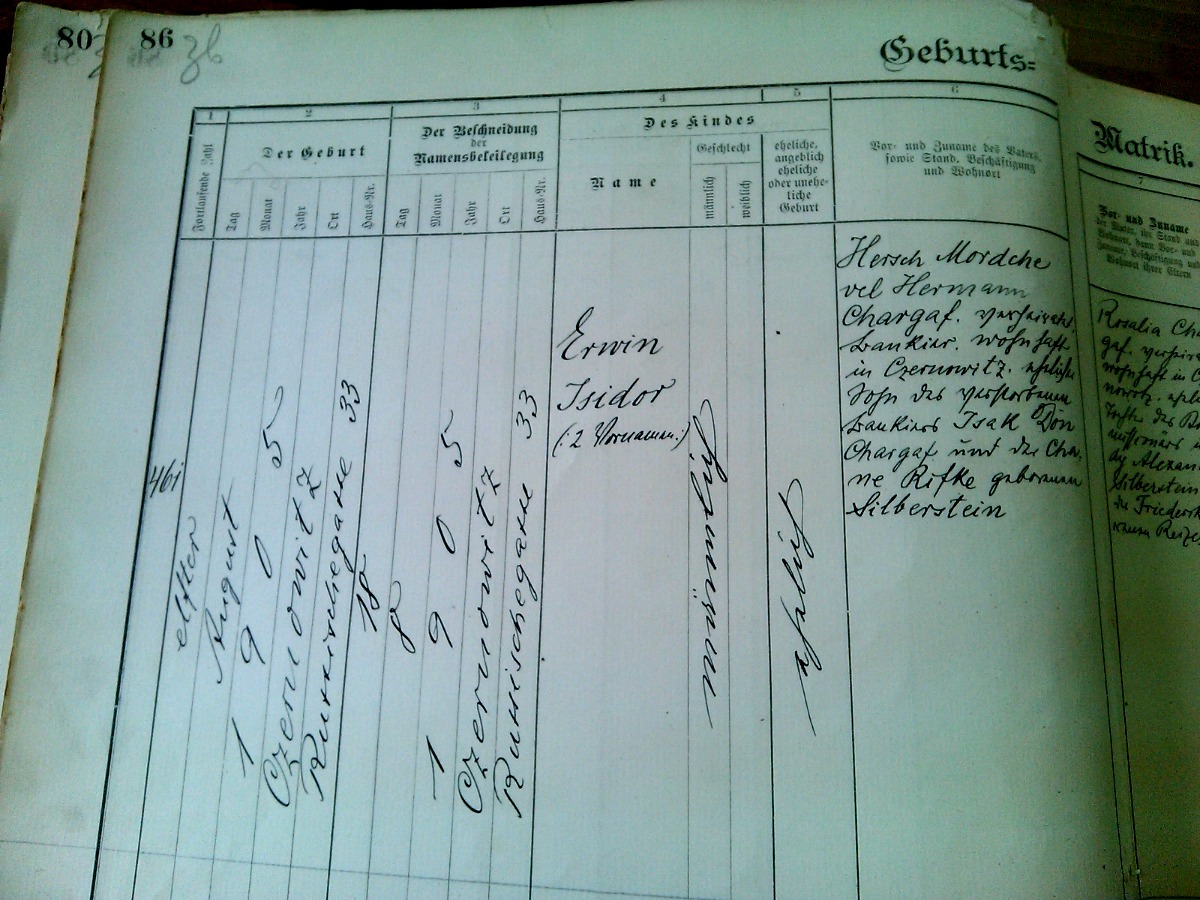 80
86
36
Geburts=
1
2
3
4
5
6
Fortlaufende Zahl
Der Geburt
Tag
Monat
Jahr
Ort
Haus-Nr.
Der Beschneidung
der
Namensbeilegung
Tag
Monat
Jahr
Ort
Haus-Nr.
Des Kindes
Name
Geschlecht
männlich
weiblich
eheliche,
angeblich
eheliche
oder unehe-
liche
Geburt
Vor- und Zuname des Vaters,
sowie Stand, Beschäftigung
und Wohnort
461
elfter
August
1 9 0 5
Czernowitz
Russischegasse 33
18
8
1 9 0 5
Czernowitz
Russischegasse 33
Erwin
Isidor
(: 2 Vornamen :)
männlich
ehelich
Hersch Mordche
vel Hermann
Chargaf. verheiratet.
Bankier. wohnhaft
in Czernowitz. ehelicher
Sohn des verstorbenen
Bankiers Isak Don
Chargaf und der Cha-
ne Rifke geborenen
Silberstein
Matrik.
7
Vor- und Zuname
der Mutter, ihr Stand und
Wohnort, dann Vor- und
Zuname, Beschäftigung und
Wohnort ihrer Eltern
Rosalia Cha
gaf. verhei
wohnhaft in C
nowitz. ehel
Tochter des
missionärs
Alexan
Silberstein
der Friederi
Reize